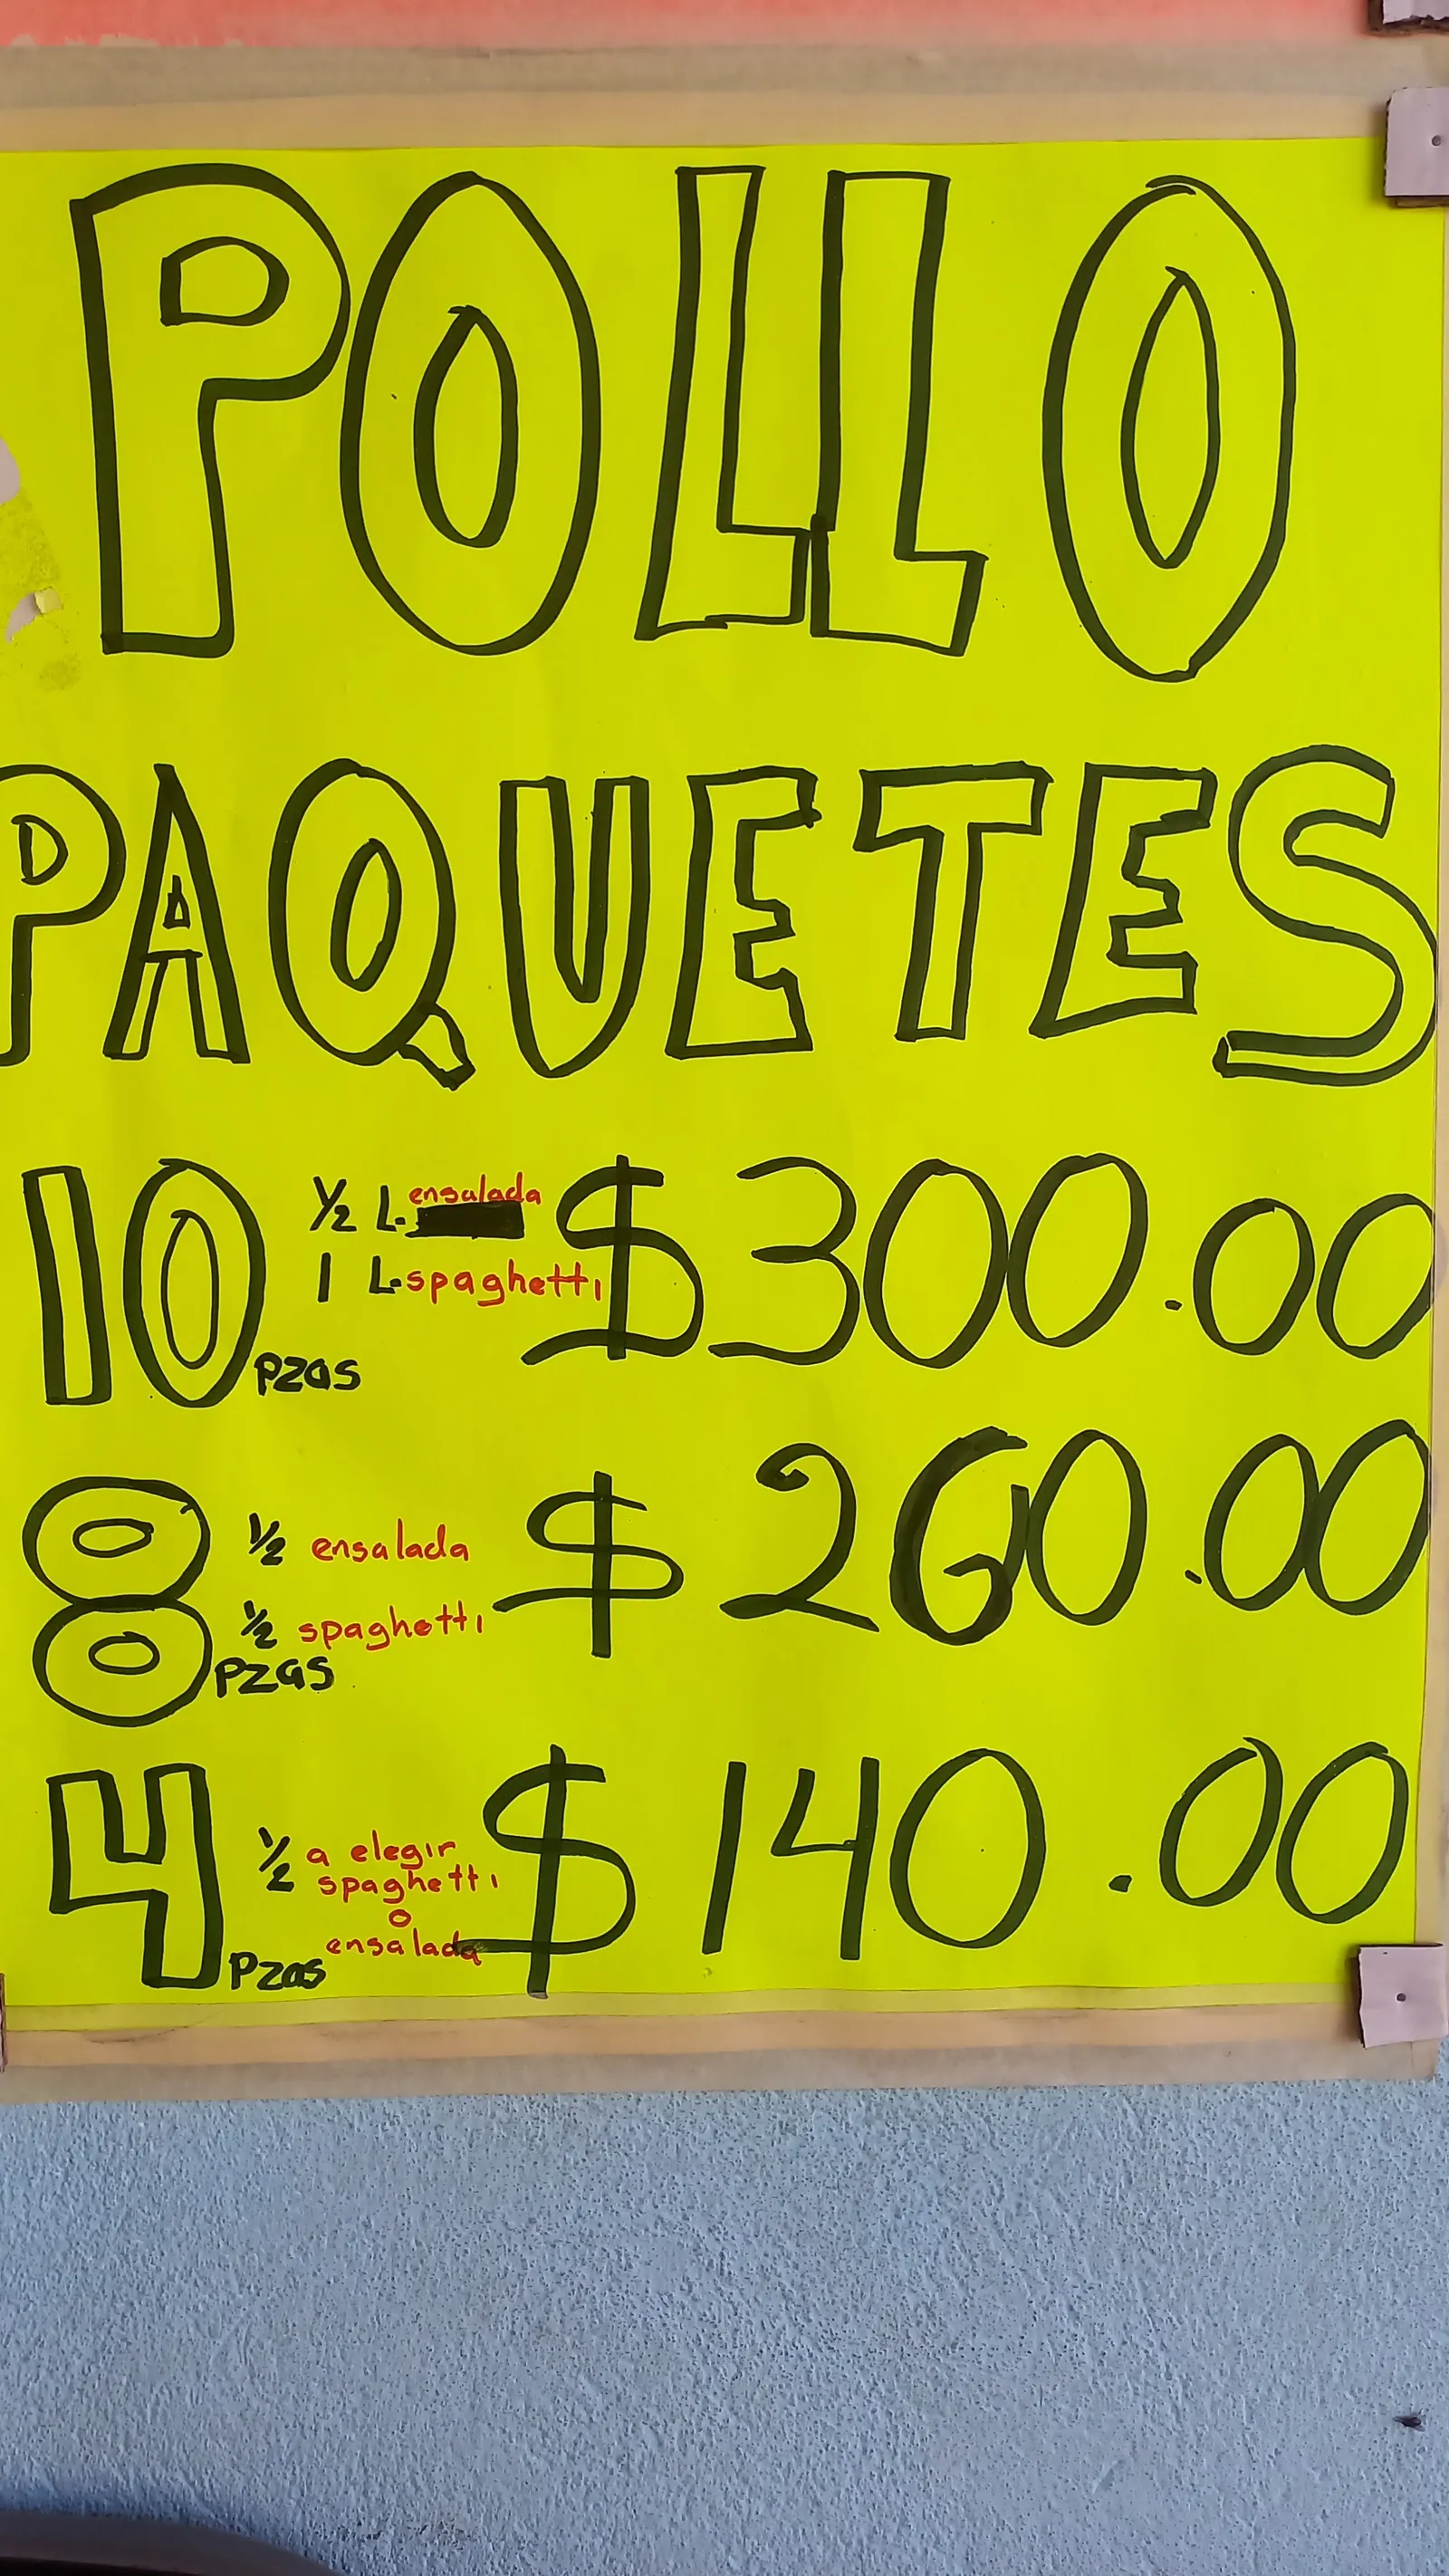 POLLO
PAQUETES
10 PZAS ½ L. ensalada $300.00
1 L. spaghetti
8 PZAS ½ ensalada $260.00
½ spaghetti
4 PZAS ½ a elegir $140.00
spaghetti
o
ensalada